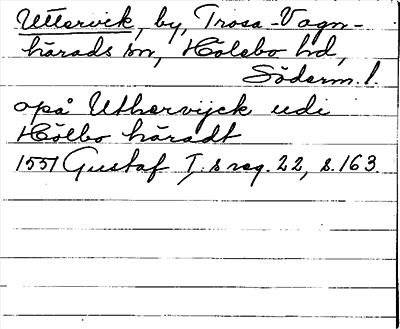 Uttervik, by, Trosa-Vagn-
härads sn, Hölebo hd,
Söderm. l.
opå Uthervijck udi
Hölbo häradt
1551 Gustaf I:s reg. 22, s. 163.